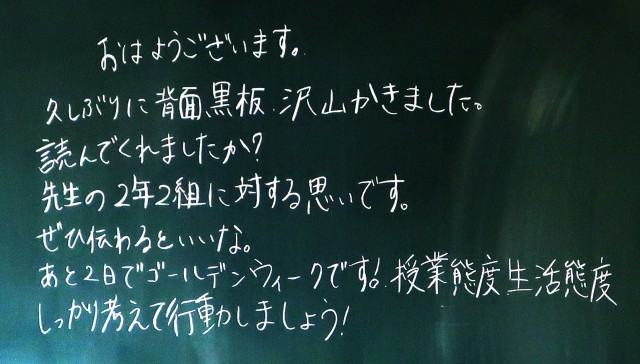 おはようございます。
久しぶりに背面黒板.沢山かきました。
読んでくれましたか?
先生の2年2組に対する思いです。
ぜひ伝わるといいな。
あと2日でゴールデンウィークです!.授業態度生活態度
しっかり考えて行動しましょう!